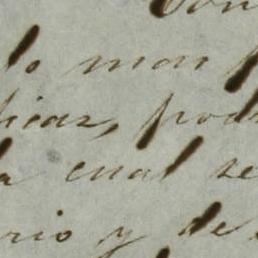 lo mas p
licar, pod
la cual se
rio y de